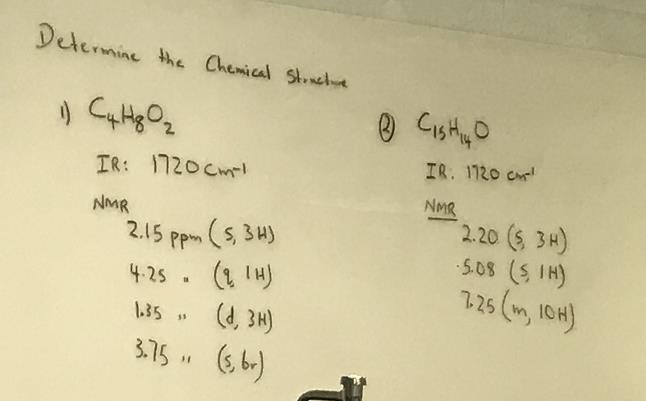 Determine the Chemical Structure
1) C₄H₈O₂
IR: 1720 cm⁻¹
NMR
2.15 ppm (s, 3H)
4.25 " (q, 1H)
1.35 " (d, 3H)
3.75 " (s, br)
② C₁₅H₁₄O
IR. 1720 cm⁻¹
NMR
2.20 (s, 3H)
5.08 (s, 1H)
7.25 (m, 10H)